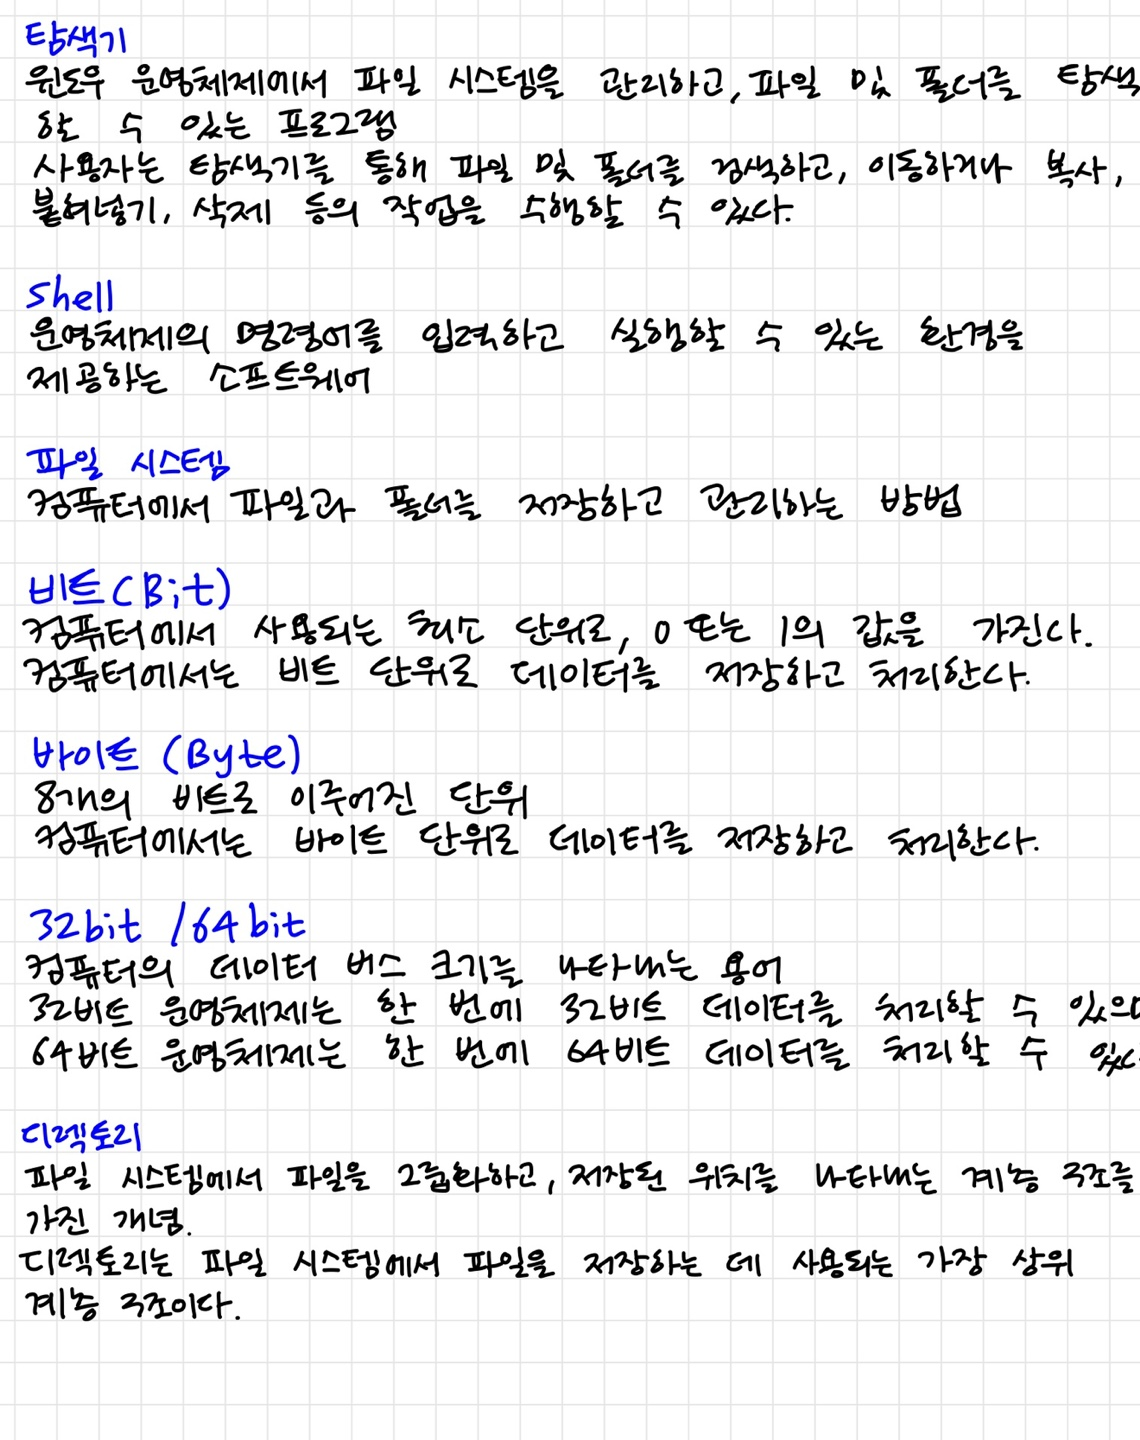 탐색기
윈도우 운영체제에서 파일 시스템을 관리하고, 파일 및 폴더를 탐색
할 수 있는 프로그램
사용자는 탐색기를 통해 파일 및 폴더를 검색하고, 이동하거나 복사,
붙혀넣기, 삭제 등의 작업을 수행할 수 있다.
shell
운영체제의 명령어를 입력하고 실행할 수 있는 환경을
제공하는 소프트웨어
파일 시스템
컴퓨터에서 파일과 폴더를 저장하고 관리하는 방법
비트(Bit)
컴퓨터에서 사용되는 최소 단위로, 0 또는 1의 값을 가진다.
컴퓨터에서는 비트 단위로 데이터를 저장하고 처리한다.
바이트 (Byte)
8개의 비트로 이루어진 단위
컴퓨터에서는 바이트 단위로 데이터를 저장하고 처리한다.
32bit /64bit
컴퓨터의 데이터 버스 크기를 나타내는 용어
32비트 운영체제는 한 번에 32비트 데이터를 처리할 수
64비트 운영체제는 한 번에 64비트 데이터를 처리할 수
디렉토리
파일 시스템에서 파일을 그룹화하고, 저장된 위치를 나타내는 계층 구조를
가진 개념.
디렉토리는 파일 시스템에서 파일을 저장하는 데 사용되는 가장 상위
계층 구조이다.